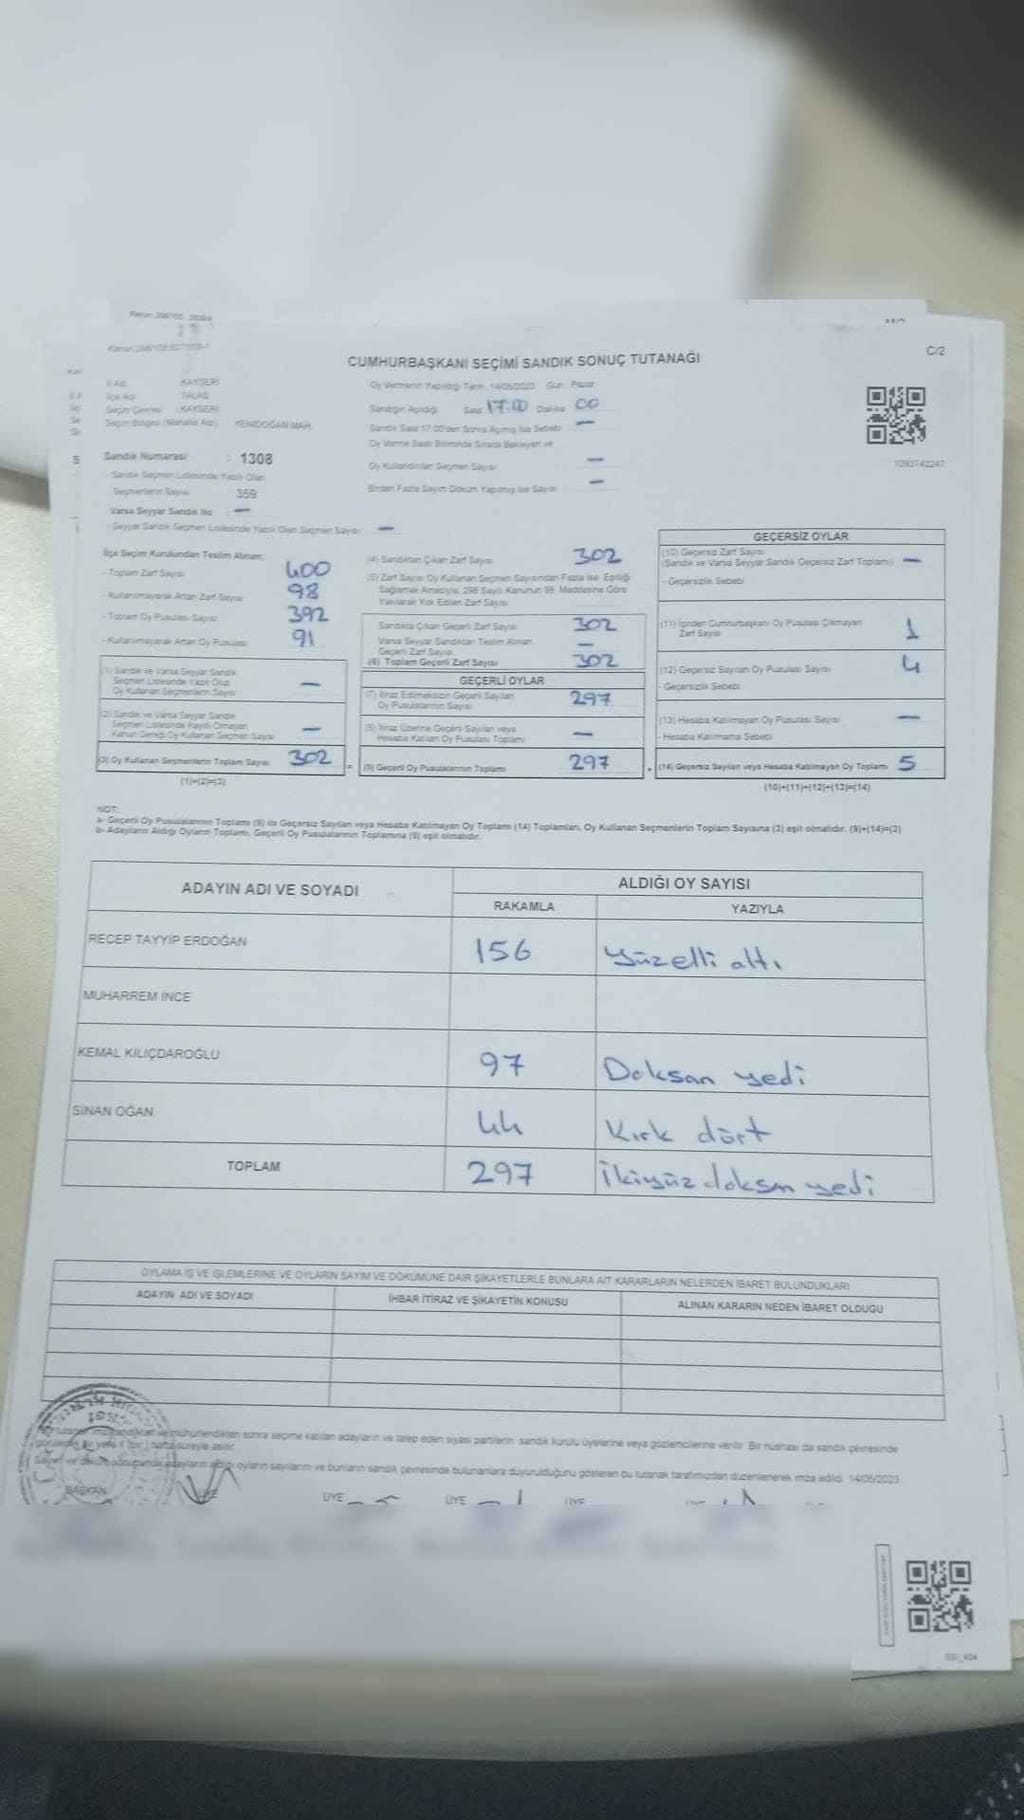 C/2
CUMHURBAŞKANI SEÇİMİ SANDIK SONUÇ TUTANAĞI
İl Adı : KAYSERİ
İlçe Adı : TALAS
Seçim Çevresi : KAYSERİ
Seçim Bölgesi (Mahalle Adı) : YENİDOĞAN MAH.
Sandık Numarası : 1308
- Sandık Seçmen Listesinde Yazılı Olan
Seçmenlerin Sayısı : 359
Varsa Seyyar Sandık No : —
- Seyyar Sandık Seçmen Listesinde Yazılı Olan Seçmen Sayısı —
Oy Vermenin Yapıldığı Tarih : 14/05/2023 Gün : Pazar
Sandığın Açıldığı Saat 17:00 Dakika 00
Sandık Saat 17:00'den Sonra Açılmış İse Sebebi —
Oy Verme Saati Bitiminde Sırada Bekleyen ve
Oy Kullandırılan Seçmen Sayısı —
Birden Fazla Sayım Döküm Yapılmış İse Sayısı —
1093742247
İlçe Seçim Kurulundan Teslim Alınan:
- Toplam Zarf Sayısı 400
- Kullanılmayarak Artan Zarf Sayısı 98
- Toplam Oy Pusulası Sayısı 392
- Kullanılmayarak Artan Oy Pusulası 91
(1) Sandık ve Varsa Seyyar Sandık
Seçmen Listesinde Yazılı Olup
Oy Kullanan Seçmenlerin Sayısı —
(2) Sandık ve Varsa Seyyar Sandık
Seçmen Listesinde Kayıtlı Olmayan
Kanun Gereği Oy Kullanan Seçmen Sayısı —
(3) Oy Kullanan Seçmenlerin Toplam Sayısı 302
(1)+(2)=(3)
(4) Sandıktan Çıkan Zarf Sayısı 302
(5) Zarf Sayısı Oy Kullanan Seçmen Sayısından Fazla İse, Eşitliği
Sağlamak Amacıyla; 298 Sayılı Kanunun 98. Maddesine Göre
Yakılarak Yok Edilen Zarf Sayısı
Sandıkta Çıkan Geçerli Zarf Sayısı 302
Varsa Seyyar Sandıktan Teslim Alınan
Geçerli Zarf Sayısı —
(6) Toplam Geçerli Zarf Sayısı 302
GEÇERLİ OYLAR
(7) İtiraz Edilmeksizin Geçerli Sayılan
Oy Pusulalarının Sayısı 297
(8) İtiraz Üzerine Geçerli Sayılan veya
Hesaba Katılan Oy Pusulası Toplamı —
(9) Geçerli Oy Pusulalarının Toplamı 297
GEÇERSİZ OYLAR
(10) Geçersiz Zarf Sayısı
(Sandık ve Varsa Seyyar Sandık Geçersiz Zarf Toplamı) —
- Geçersizlik Sebebi
(11) İçinden Cumhurbaşkanı Oy Pusulası Çıkmayan
Zarf Sayısı 1
(12) Geçersiz Sayılan Oy Pusulası Sayısı 4
- Geçersizlik Sebebi
(13) Hesaba Katılmayan Oy Pusulası Sayısı —
- Hesaba Katılmama Sebebi
(14) Geçersiz Sayılan veya Hesaba Katılmayan Oy Toplamı 5
(10)+(11)+(12)+(13)=(14)
NOT:
a- Geçerli Oy Pusulalarının Toplamı (9) ile Geçersiz Sayılan veya Hesaba Katılmayan Oy Toplamı (14) Toplamları, Oy Kullanan Seçmenlerin Toplam Sayısına (3) eşit olmalıdır. (9)+(14)=(3)
b- Adayların Aldığı Oyların Toplamı, Geçerli Oy Pusulalarının Toplamına (9) eşit olmalıdır.
ADAYIN ADI VE SOYADI
ALDIĞI OY SAYISI
RAKAMLA YAZIYLA
RECEP TAYYİP ERDOĞAN 156 Yüzelli altı
MUHARREM İNCE
KEMAL KILIÇDAROĞLU 97 Doksan yedi
SİNAN OĞAN 44 Kırk dört
TOPLAM 297 İkiyüz doksan yedi
OYLAMA İŞ VE İŞLEMLERİNE VE OYLARIN SAYIM VE DÖKÜMÜNE DAİR ŞİKAYETLERLE BUNLARA AİT KARARLARIN NELERDEN İBARET BULUNDUKLARI
ADAYIN ADI VE SOYADI İHBAR İTİRAZ VE ŞİKAYETİN KONUSU ALINAN KARARIN NEDEN İBARET OLDUĞU
mühürlendikten sonra seçime katılan adayların ve talep eden siyasi partilerin sandık kurulu üyelerine veya gözlemcilerine verilir. Bir nüshası da sandık çevresinde
oyların sayılarını ve bunların sandık çevresinde bulunanlara duyurulduğunu gösteren bu tutanak tarafımızdan düzenlenerek imza edildi. 14/05/2023
BAŞKAN ÜYE ÜYE ÜYE ÜYE